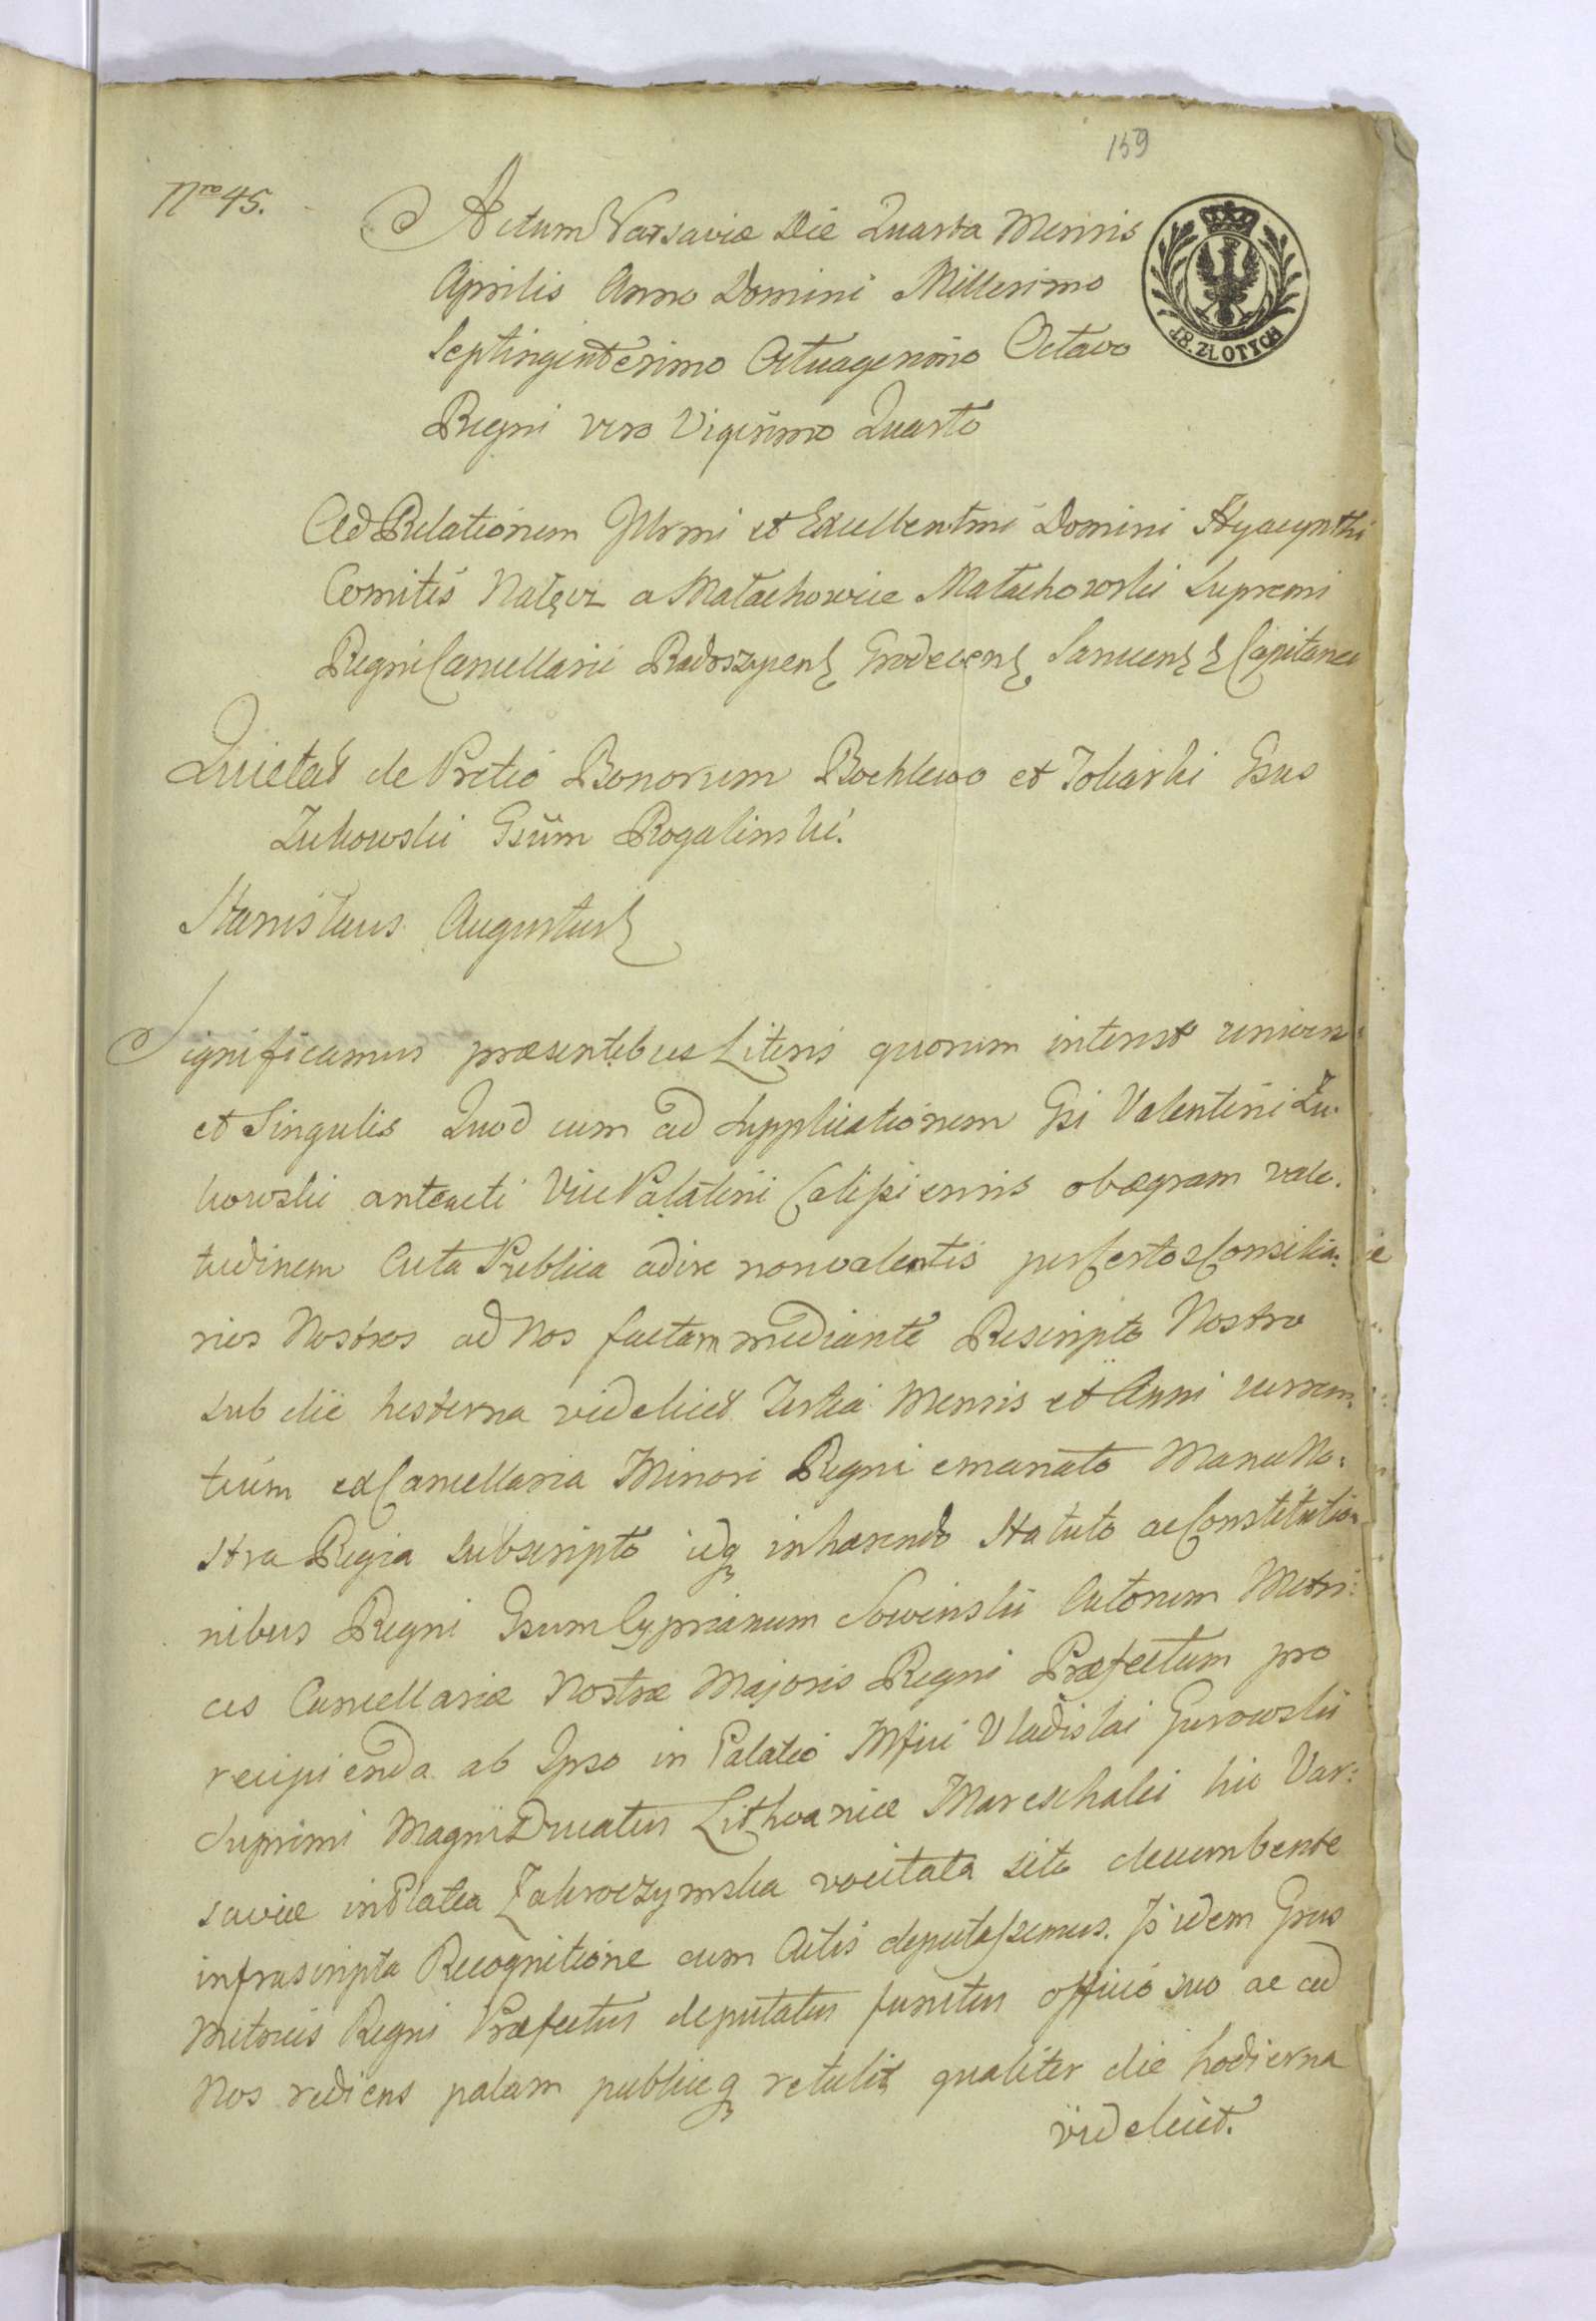 159
Nro 45.
Actum Varsaviæ Die Quarta Mensis
Aprilis Anno Domini Millesimo
Septingentesimo Octuagesimo Octavo
Regni vero Vigesimo Quarto
18. ZŁOTYCH
Ad Relationem Illrmi et Excellentmi Domini Hyacynthi
Comitis Nałęcz a Małachowice Małachowski Supremi
Regni Cancellarii Radoszycen Grodecen Capitanei
Quietat de Pretio Bonorum Bochlewo et Tokarki Gsus
Zukowski Gsum Rogalinski.
Stanislaus Augustus
Significamus præsentibus Literis quorum interest univer
et Singulis Quod cum ad Supplicationem Gsi Valentini Żu-
kowski anteacti Vice Palatini Calissiensis ob ægram vale-
tudinem Acta Publica adire non valentis per Certos Consilia-
rios Nostros ad Nos factam mediante Rescripto Nostro
sub die hesterna videlicet Tertia Mensis et Anni curren-
tium ex Cancellaria Minori Regni emanato Manu No-
stra Regia subscripto idq inhærendo Statuto ac Constitutio-
nibus Regni Gsum Cyprianum Sowinski Actorum Metri-
ces Cancellariæ Nostræ Majoris Regni Præfectum pro
recipienda ab Ipso in Palatio Mfici Vladislai Gurowski
Supremi Magni Ducatus Lithvaniæ Mareschalci hic Var-
saviæ in Platea Zakroczymska vocitata sito decumbente
infrascripta Recognitione cum Actis deputassemus. Is idem Gsus
Metrices Regni Præfectus deputatus functus officio suo ac ad
Nos rediens palam publiceq retulit qualiter die hodierna
videlicet.